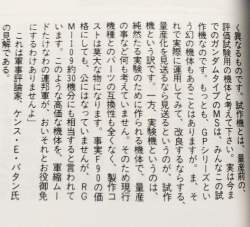 く異なるものです。試作機は、量産前の、
評価試験用の機体と考えて下さい。実は今ま
でのガンダムタイプのMSは、みんなこの試
作機なのです。もっとも、GPシリーズとい
う幻の機体もあることはありますが。ま、そ
れで実際に運用してみて、改良するなりする、
量産化を見送るなり見送るというのが、試作
機という訳です。一方、実験機というのは、
純然たる実験のために作られる機体で、量産
の事など何も考えていません。そのため現行
機種とのパーツの互換性も全くなく、製作コ
ストは莫大な物になります。事実F90の価
格にしても、公にはなっていませんが、RG
M109約10機分にも相当すると言われて
います。このような高価な機体を、軍縮ムー
ドたけなわの連邦軍が、おいそれとお役御免
にするわけありませんよ」
これは軍事評論家、ケンス・E・バタン氏
の見解である。